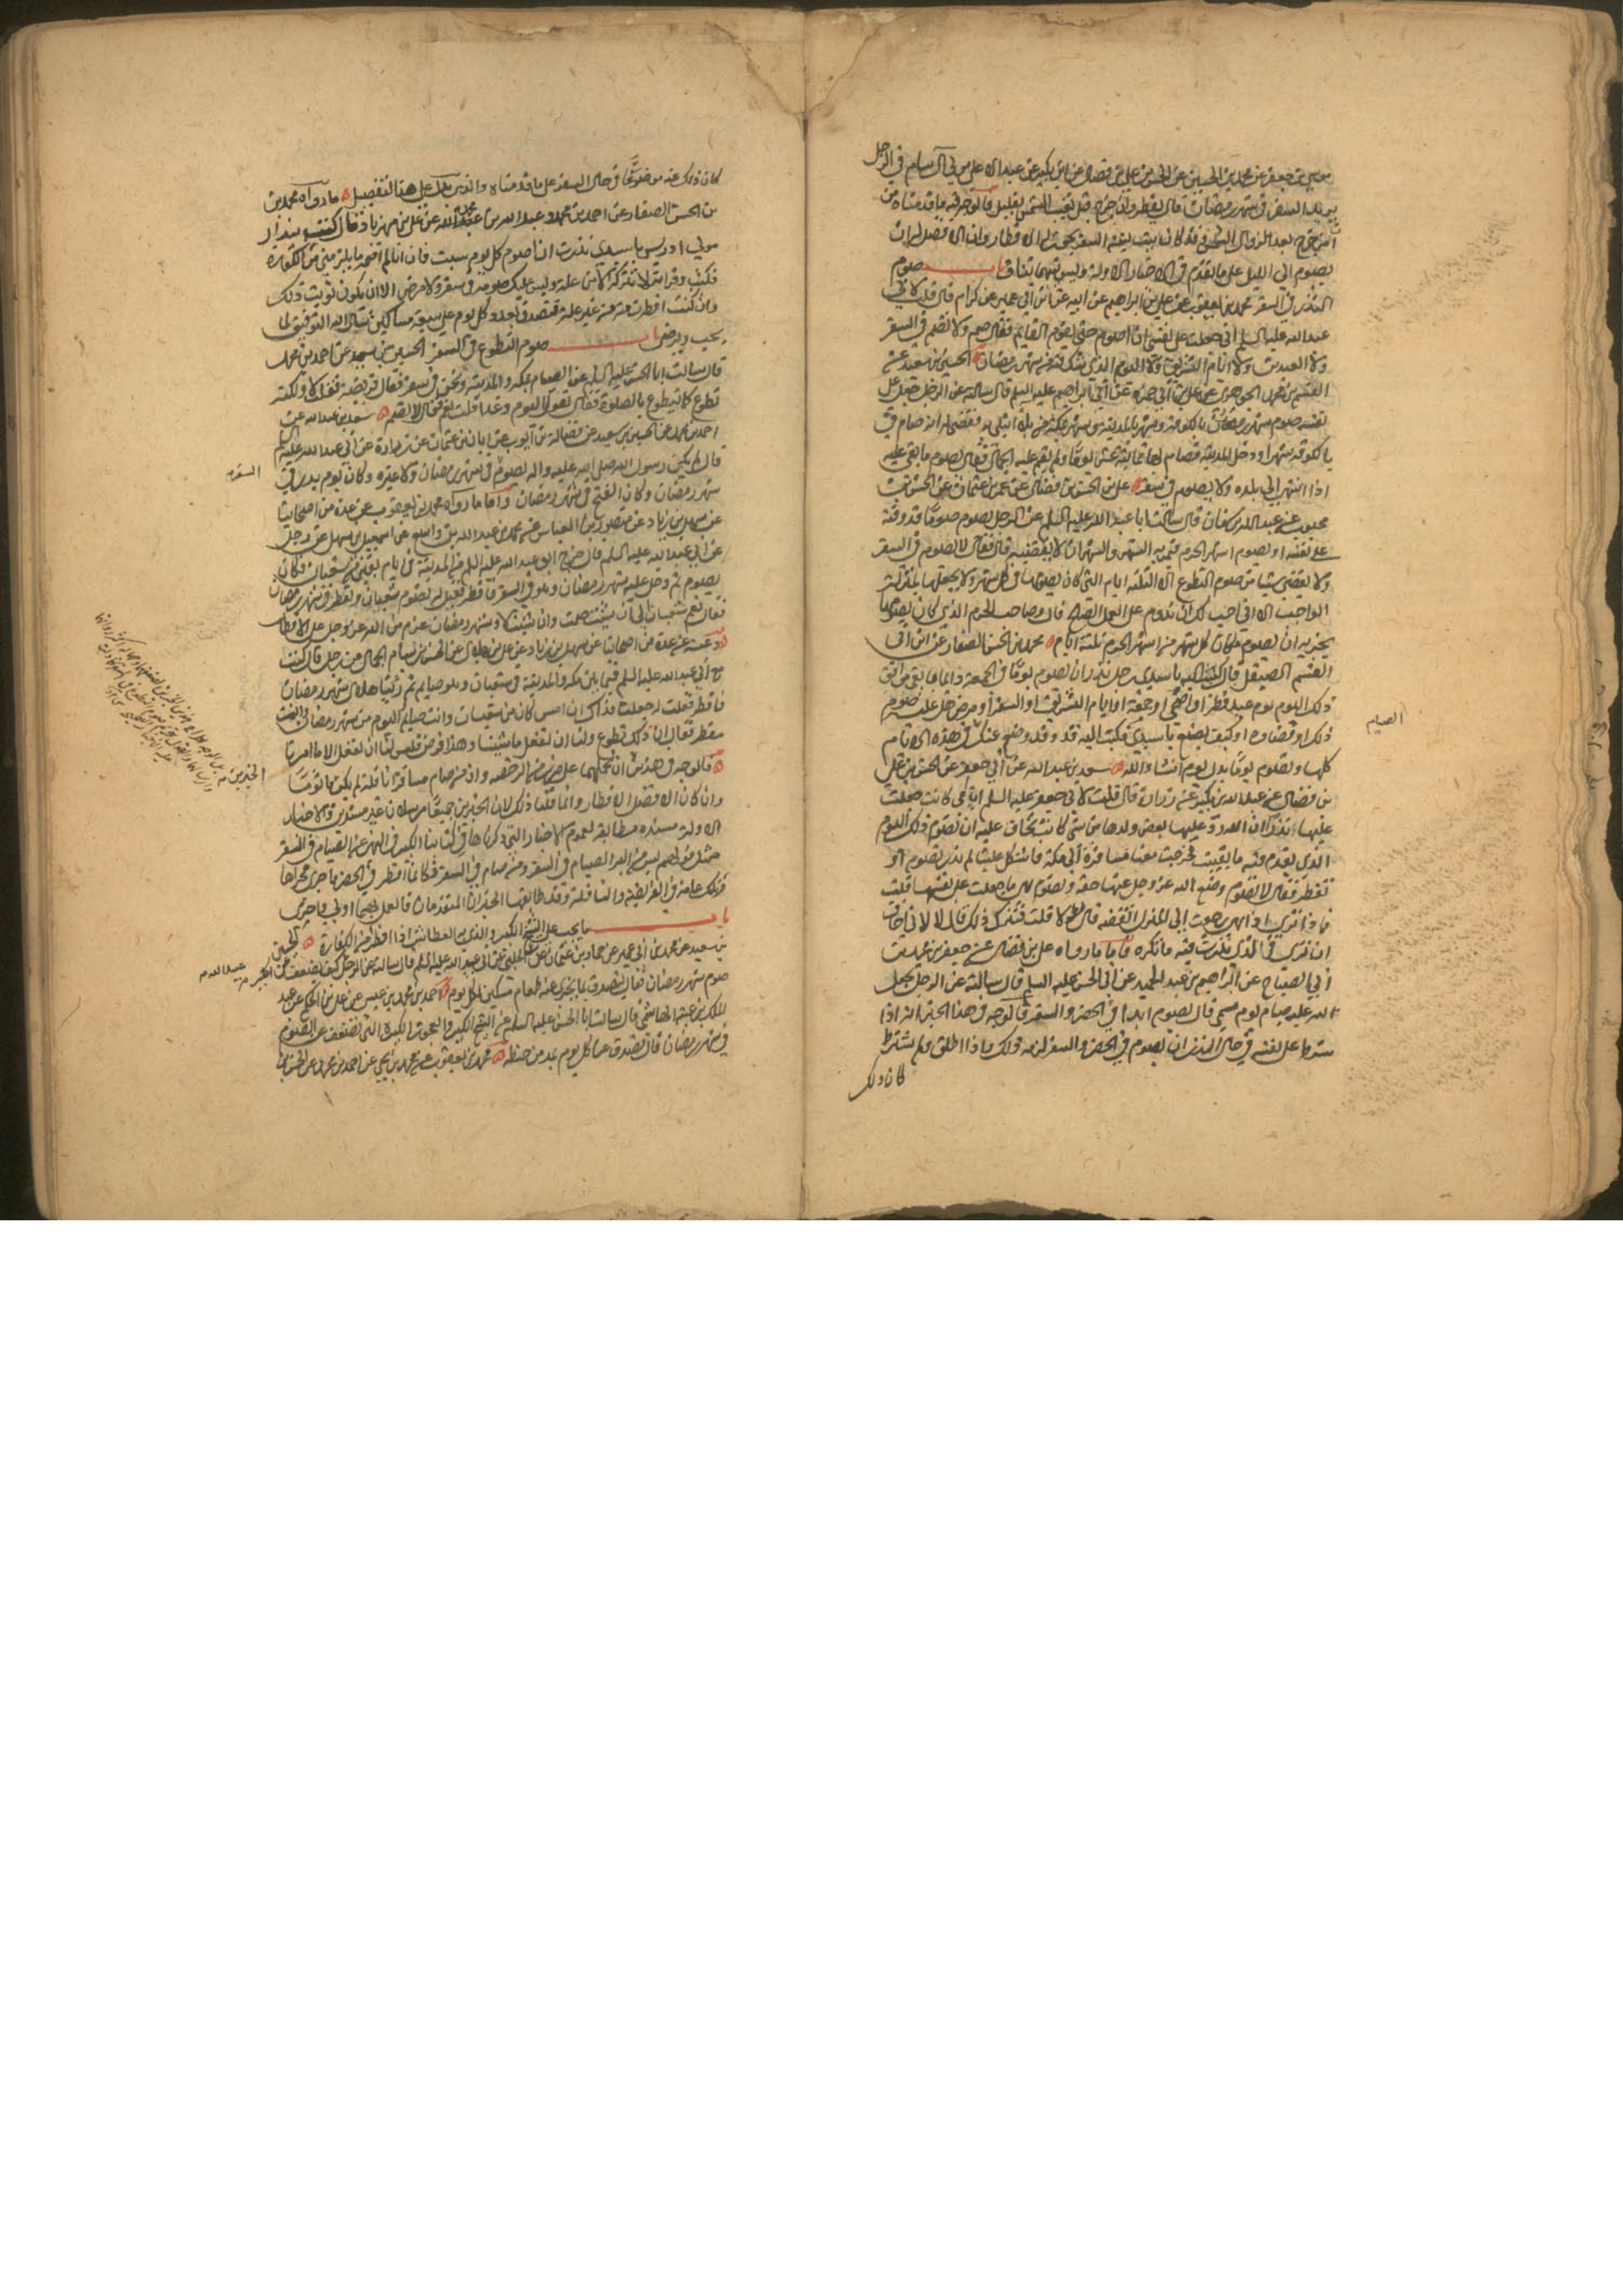 موسى بن جعفر عن محمد بن الحسين عن الحسن بن علي بن فضال عن ابن بكير عن عبد الاعلى مولى آل سام في الرجل
يريد السفر في شهر رمضان قال يفطر وان خرج قبل تغيب الشمس بقليل فالوجه فيه ما قدمناه من
انه اذا خرج بعد الزوال وكان بيت نية السفر يجوز له الافطار وان الافضل له ان
يصوم الى الليل على ما تقدم في الاخبار الاولة وليس بينهما تناف باب صوم
النذر في السفر محمد بن يعقوب عن علي بن ابراهيم عن ابيه عن ابن ابي عمير عن كرام قال قلت لابي
عبد الله عليه السلم اني جعلت على نفسي ان اصوم حتى يقوم القايم فقال صم ولا تصم في السفر
ولا العيدين ولا ايام التشريق ولا اليوم الذي تشك فيه من شهر رمضان الحسين بن سعيد عن
القسم بن محمد الجوهري عن علي بن ابي حمزة عن ابي ابراهيم عليه السلم قال سالته عن الرجل جعل على
نفسه صوم شهر بالكوفة وشهر بالمدينة وشهر بمكة من بلاء ابتلي به فقضى له انه صام
بالكوفة شهرا ودخل المدينة فصام بها ثمانية عشر يوما ولم يقم عليه الجمال فقال يصوم ما بقي عليه
اذا انتهى الى بلده ولا يصوم في سفر علي بن الحسن بن فضال عن عمرو بن عثمان عن الحسن بن
محبوب عن عبد الله بن سنان قال سالت ابا عبد الله عليه السلم عن الرجل يصوم صوما قد وقته
على نفسه او يصوم اشهر الحرم فيمر به الشهر والشهران لا يقضيه قال فقال لا يصوم في السفر
ولا يقضي شيئا من صوم التطوع الا الثلثة ايام التي كان يصومها في كل شهر ولا يجعلها بمنزلة
الواجب الا اني احب لك ان تدوم على العمل الصالح قال وصاحب الحرم الذي كان يصومها
يجزيه ان يصوم مكان كل شهر من اشهر الحرم ثلثة ايام محمد بن الحسن الصفار عن
القسم الصيقل قال كتب اليه يا سيدي رجل نذر ان يصوم يوما في الجمعة دائما ما بقي فوافق
ذلك اليوم يوم عيد فطر او اضحى او جمعة او ايام التشريق او السفر او مرض هل عليه صوم
ذلك او قضاوه او كيف يصنع يا سيدي فكتب اليه قد وضع عنك في هذه الايام
كلها وتصوم يوما بدل يوم انشاء الله سعد بن عبد الله عن ابي جعفر عن الحسن بن علي
بن فضال عن عبد الله بن بكير عن زرارة قال قلت لابي جعفر عليه السلم ان امي كانت جعلت
عليها نذرا ان الله رد عليها بعض ولدها من شيء كانت تخاف عليه ان تصوم ذلك اليوم
الذي يقدم فيه ما بقيت فخرجت معنا مسافرة الى مكة فاشكل علينا لم ندر تصوم او
تفطر فقال لا تصوم وضع الله عز وجل عنها حقه وتصوم هي ما جعلت على نفسها قلت
فما ذا ترى اذا هي رجعت الى المنزل اتقضيه قال لا قلت فتترك ذلك قال لا لاني اخاف
ان ترى في الذي نذرت فيه ما تكره فاما ما رواه علي بن فضال عن جعفر بن محمد بن
ابي الصباح عن ابراهيم بن عبد الحميد عن ابي الحسن عليه السلم قال سالته عن الرجل يجعل
لله عليه صيام يوم مسمى قال يصوم ابدا في الحضر والسفر فالوجه في هذا الخبر انه اذا
شرط على نفسه في حال النذر ان يصوم في الحضر والسفر لزمه ذلك واذا اطلق ولم يشترط
كان ذلك
الصيام
كان ذلك عنه موضوعا في حال السفر على ما قدمناه والذي يدل على هذا التفصيل ما رواه محمد بن
بن الحسن الصفار عن احمد بن محمد وعبد الله بن محمد عن علي بن مهزيار قال كتب بندار
مولى ادريس يا سيدي نذرت ان اصوم كل يوم سبت فان انا لم اصمه ما يلزمني من الكفارة
فكتب وقراته لا تتركه الا من علة وليس عليك صومه في سفر ولا مرض الا ان تكون نويت ذلك
وان كنت افطرت منه من غير علة فتصدق بعدد كل يوم على سبعة مساكين نسال الله التوفيق لما
يحب ويرضى باب صوم التطوع في السفر الحسين بن سعيد عن احمد بن محمد
قال سالت ابا الحسن عليه السلم عن الصيام بمكة والمدينة ونحن في سفر فقال فريضة فقلت لا ولكنه
تطوع كما نتطوع بالصلوة فقال تقول اليوم وغدا قلت نعم فقال لا تصم سعد بن عبد الله عن
احمد بن محمد عن الحسين بن سعيد عن فضالة بن ايوب عن ابان بن عثمان عن زرارة عن ابي عبد الله عليه السلم
قال لم يكن رسول الله صلى الله عليه واله يصوم في شهر رمضان ولا غيره وكان يوم بدر في
شهر رمضان وكان الفتح في شهر رمضان واما ما رواه محمد بن يعقوب عن عدة من اصحابنا
عن سهل بن زياد عن منصور بن العباس عن محمد بن عبد الله بن واسع عن اسمعيل بن سهل عن رجل
عن ابي عبد الله عليه السلم قال خرج ابو عبد الله عليه السلم من المدينة في ايام بقين من شعبان فكان
يصوم ثم دخل عليه شهر رمضان وهو في السفر فافطر فقيل له تصوم شعبان وتفطر شهر رمضان
فقال نعم شعبان الي ان شئت صمت وان شئت لا وشهر رمضان عزم من الله عز وجل على الافطار
وعنه عن عدة من اصحابنا عن سهل بن زياد عن علي بن بلال عن الحسن بن بسام الجمال عن رجل قال كنت
مع ابي عبد الله عليه السلم فيما بين مكة والمدينة في شعبان وهو صايم ثم راينا هلال شهر رمضان
فافطر فقلت له جعلت فداك امس كان من شعبان وانت صايم واليوم من شهر رمضان وانت
مفطر فقال ان ذلك تطوع ولنا ان نفعل ما شئنا وهذا فرض فليس لنا ان نفعل الا ما امرنا
فالوجه في هذين ان نحملهما على ضرب من الرخصة وان من صام مسافرا نافلة لم يكن ماثوما
وان كان الافضل الافطار وانما قلنا ذلك لان الخبرين جميعا مرسلان غير مسندين والاخبار
الاولة مسنده مطابقة لعموم الاخبار التي ذكرناها في كتابنا الكبير في النهي عن الصيام في السفر
مثل قولهم ليس من البر الصيام في السفر ومن صام في السفر فكانما افطر في الحضر وما جرى مجراها
باب ما يجب على الشيخ الكبير والذي به العطاش اذا افطر من الكفارة الحسين
صوم شهر رمضان فقال يتصدق بما يجزي عنه طعام مسكين لكل يوم احمد بن محمد بن عيسى عن علي بن الحكم عن عبد
الملك بن عتبة الهاشمي قال سالت ابا الحسن عليه السلم عن الشيخ الكبير والعجوز الكبيرة التي تضعف عن الصوم
في شهر رمضان قال تصدق عن كل يوم بمد من حنطة محمد بن يعقوب عن محمد بن يحيى عن احمد بن محمد عن
السفر
الخبرين